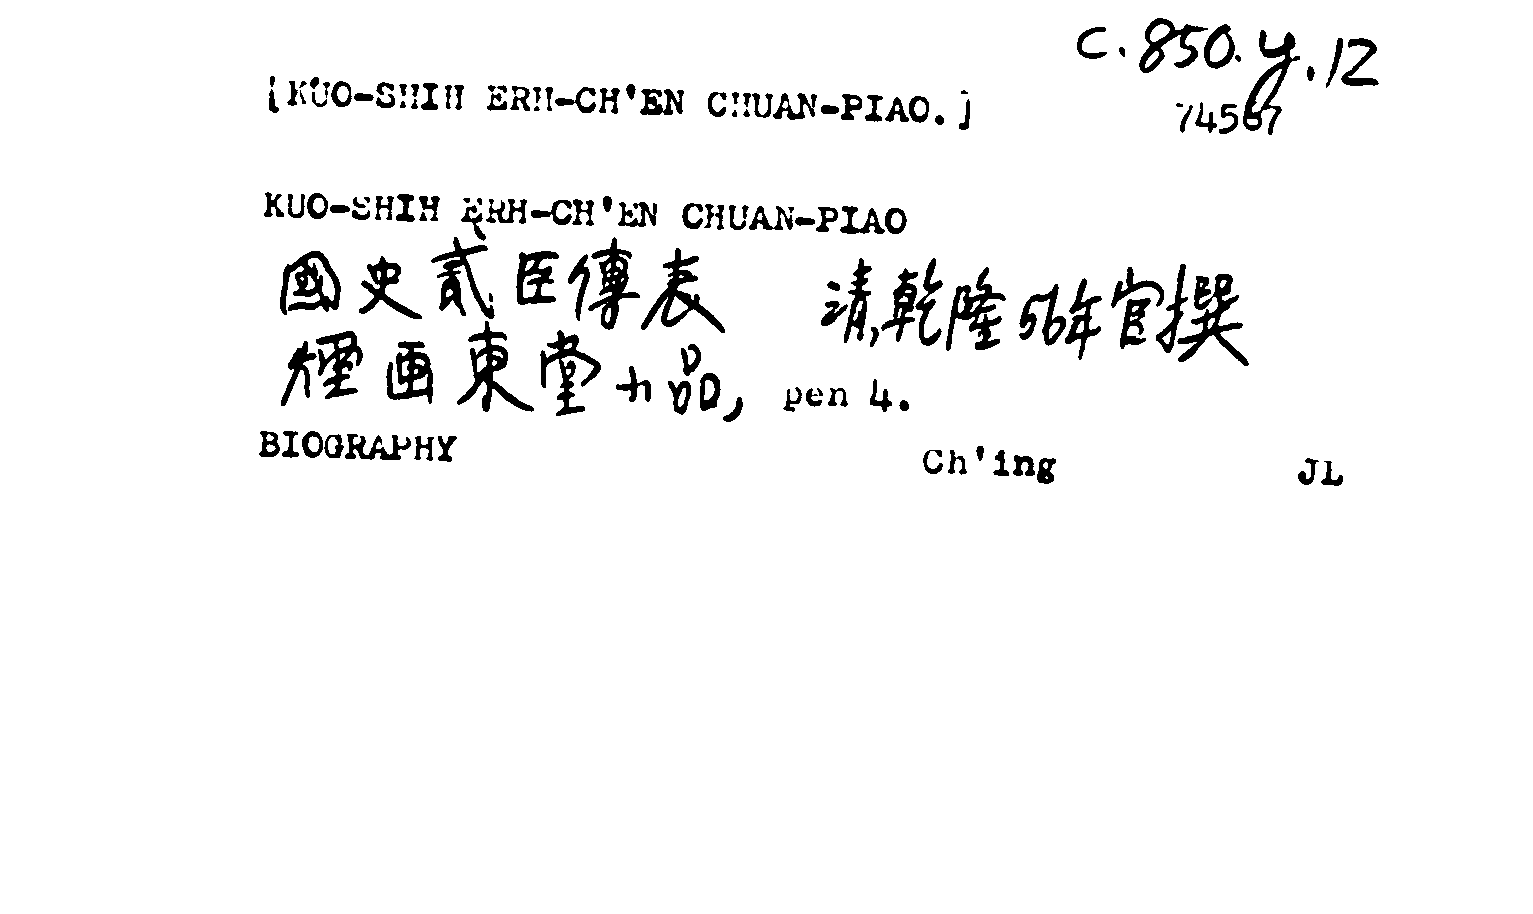 c.850.y.12
[KUO-SHIH ERH-CH'EN CHUAN-PIAO.]
74567
KUO-SHIH ERH-CH'EN CHUAN-PIAO
國史貳臣傳表 清乾隆56年官撰
煙画東堂小品, pen 4.
BIOGRAPHY Ch'ing JL